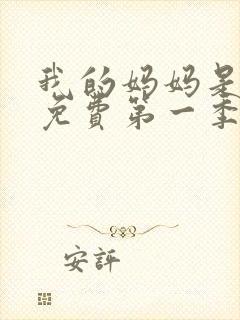 我的妈妈是
免费第一季
安评